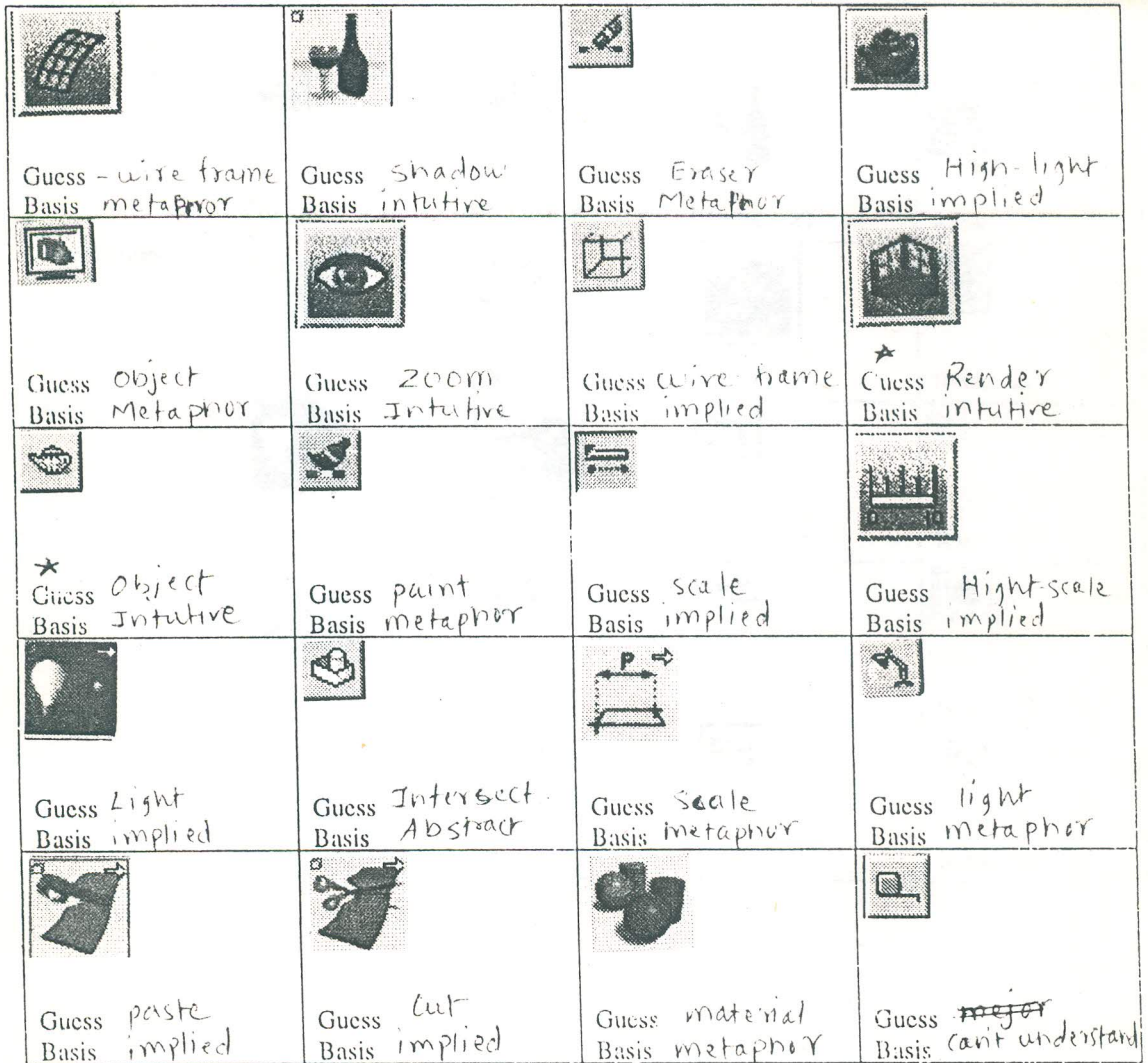 Guess - wire frame
Basis metaphor
Guess Shadow
Basis intutive
Guess Eraser
Basis Metaphor
Guess High-light
Basis implied
Guess Object
Basis Metaphor
Guess Zoom
Basis Intutive
Guess wire frame
Basis implied
Guess Render
Basis intutive
Guess Object
Basis Intutive
Guess paint
Basis metaphor
Guess scale
Basis implied
0 10
Guess Hight-scale
Basis implied
Guess Light
Basis implied
Guess Intersect
Basis Abstract
P
Guess Scale
Basis metaphor
Guess light
Basis metaphor
Guess paste
Basis implied
Guess Cut
Basis implied
Guess material
Basis metaphor
Guess mejor
Basis can't understand